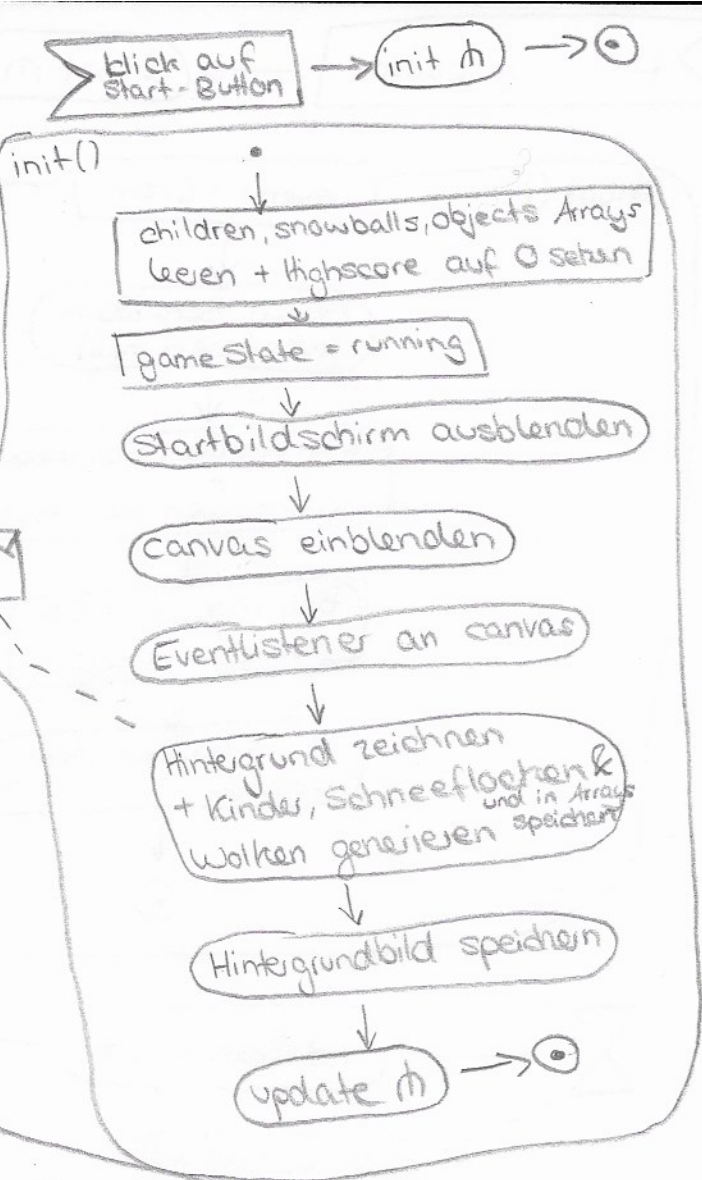 klick auf
Start-Button
init
init()
children, snowballs, objects Arrays
leeren + Highscore auf 0 setzen
gameState = running
Startbildschirm ausblenden
canvas einblenden
Eventlistener an canvas
Hintergrund zeichnen
+ Kinder, Schneeflocken &
und in Arrays
Wolken generieren speichern
Hintergrundbild speichern
update